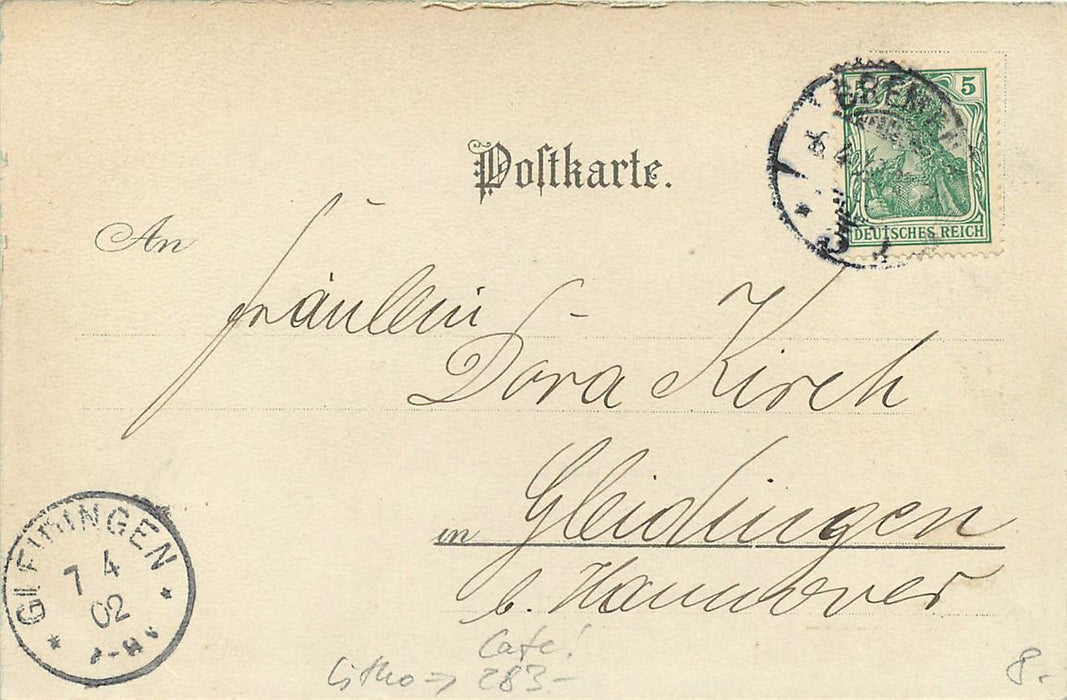 Postkarte.
BREMEN
5
DEUTSCHES REICH
An
Fräullein
Dora Kirch
in Gleidingen
b. Hannover
GLEIDINGEN
7 4
02
Cafe!
Litho → 283-
8.-